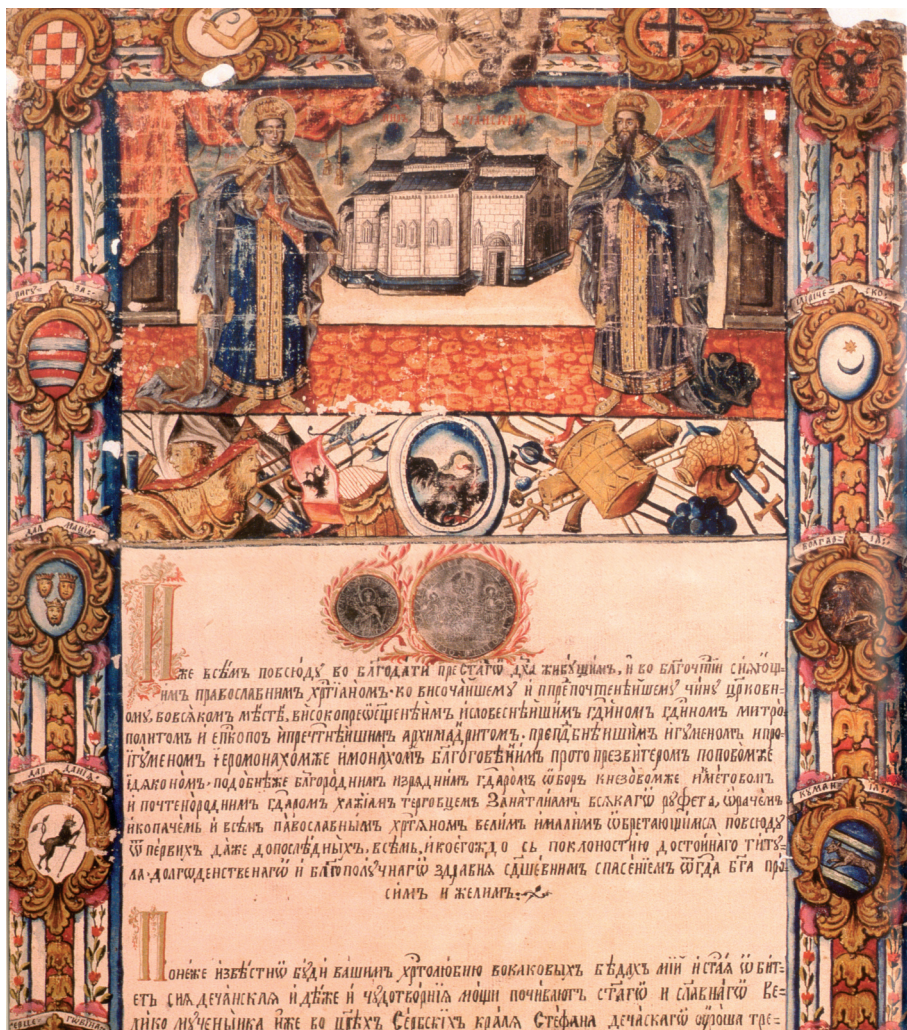 ДЕЧАНСКИЙ
ДАЛ МАЦІА
БОЛГАР= ІА=
ДАЛ ДАНІА
КУМАН ІА=
Иже всѣмъ повсюду во блгодати престагѡ дха живущимъ, и во блгочтїи сиѧющ=
имъ православнимъ хртїаномъ· ко височайшему и ппрепочтенѣйшему чину црковн=
ому, вовсѧкомъ мѣстѣ, високопреѡсщенѣнимъ исловеснѣйшимъ гдїномъ гдїномъ митро
политомъ и епкопоъ ипречтнѣйшимъ архимадритомъ· препдбнѣишимъ игуменомъ ипро=
їгуменомъ їеромонахомже имонахомъ блгоговѣйнимъ прото презвитеромъ поповомже
їдяк ономъ· подобнѣже блгороднимъ изряднимъ гдаромъ ѡборъ кнезовомже иметовомъ
и почтенороднимъ гдаромъ хажїанъ терговцемъ Занатлиамъ всякагѡ руфета, ѡрачемъ
икопачемъ и всѣмъ павославнымъ хртѧномъ велимъ ималимъ ѡбретающимсѧ повсюду
ѿ первихъ даже допослѣдныхъ. всѣмъ, икоегождо сь поклоностию достойнаго титу=
ла· долгѡденственагѡ и блгополучнагѡ здравиѧ сдшевнимъ спасенїемъ ѿгда бга про=
симъ и желимъ
Понеже извѣстнѡ буди вашимъ хртолюбию вокаковыхъ бѣдахъ мїй истаѧ ѡбит=
еть сиѧ дечанскаѧ идѣже и чудотворнїѧ мощи почивають стагѡ и славнагѡ Ве=
лико мученика иже во црѣхъ Сербскїхъ кралѧ Стефана дечаскагѡ ѹроша тре=